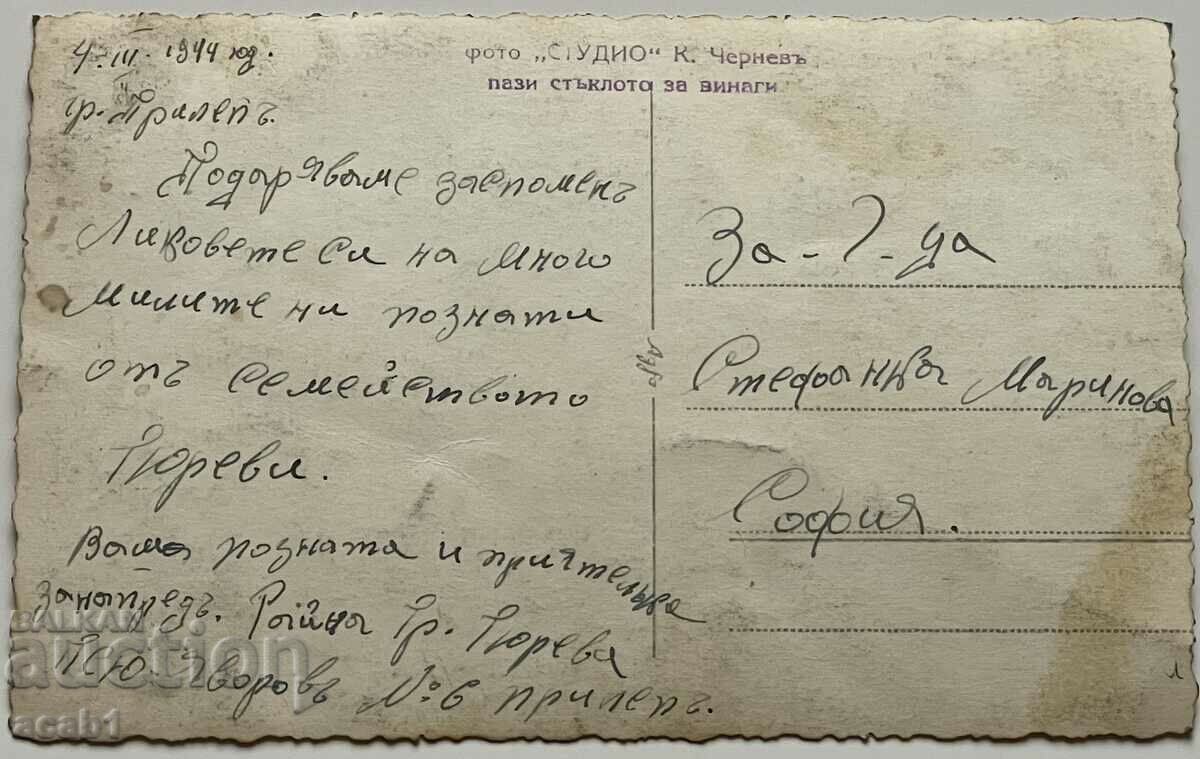 4. III. 1944 год.
гр. Прилепъ.
Подаряваме заспоменъ
Ликовете си на много
милите ни познати
отъ семейството
Гюреви.
Ваша позната и приятелька
занапредъ. Райна Гр. Гюрева
П. Ю. Яворовъ № 6 прилепъ.
фото „СТУДИО“ К. Черневъ
пази стъклото за винаги
За - Г - да
Стефанка Маринова
София.
BALKAN
auction
acab1